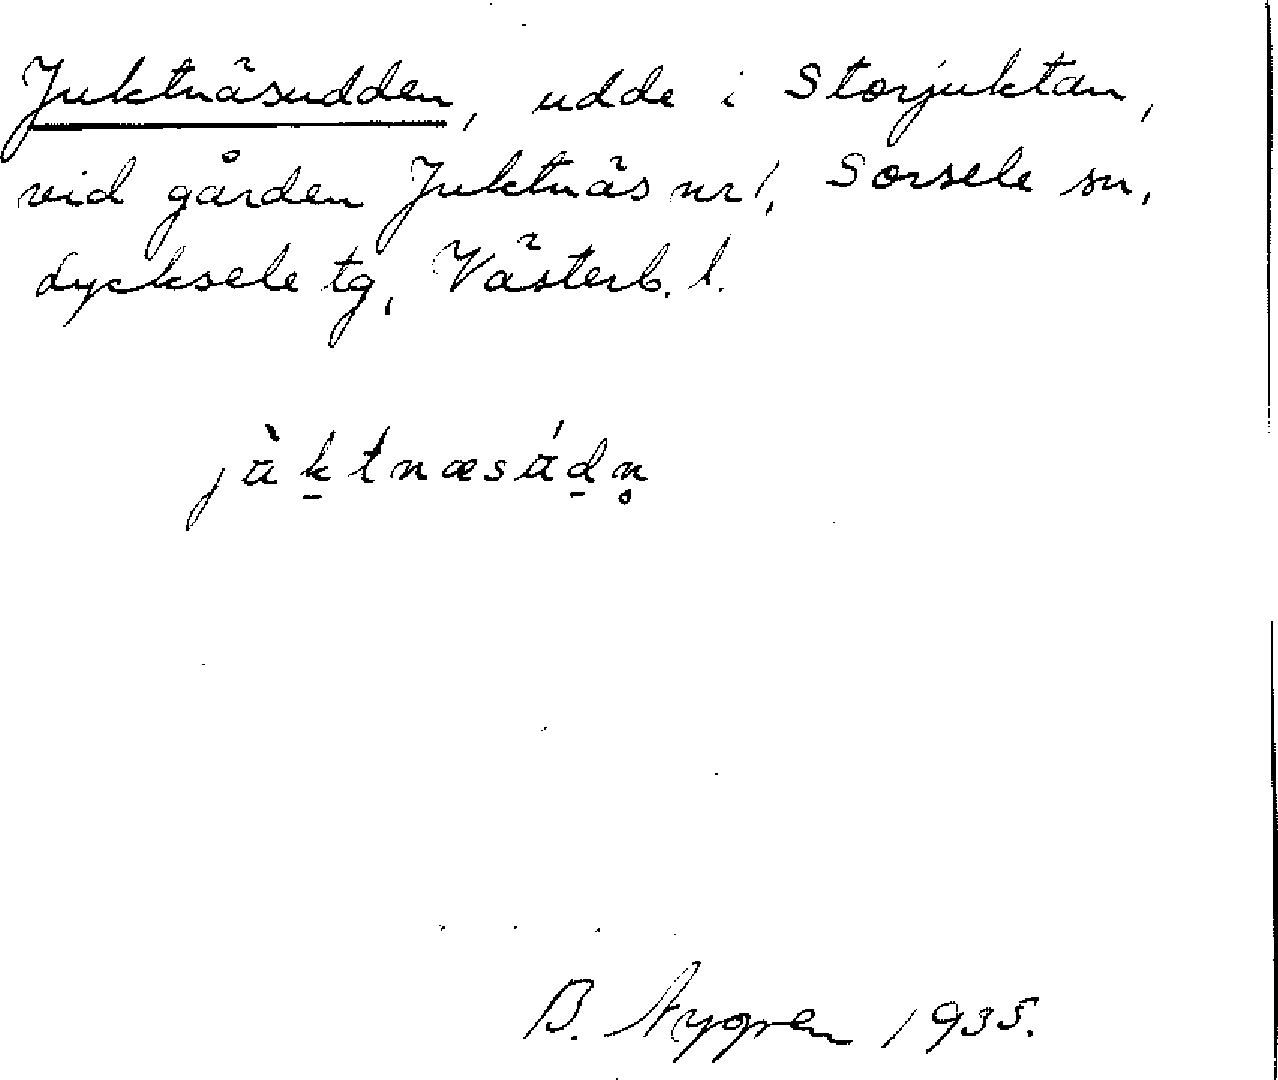 Juktnäsudden, udde i Storjuktan,
vid gården Juktnäs nr 1, Sorsele sn,
Lycksele tg, Västerb. l.
B. Nygren 1935.